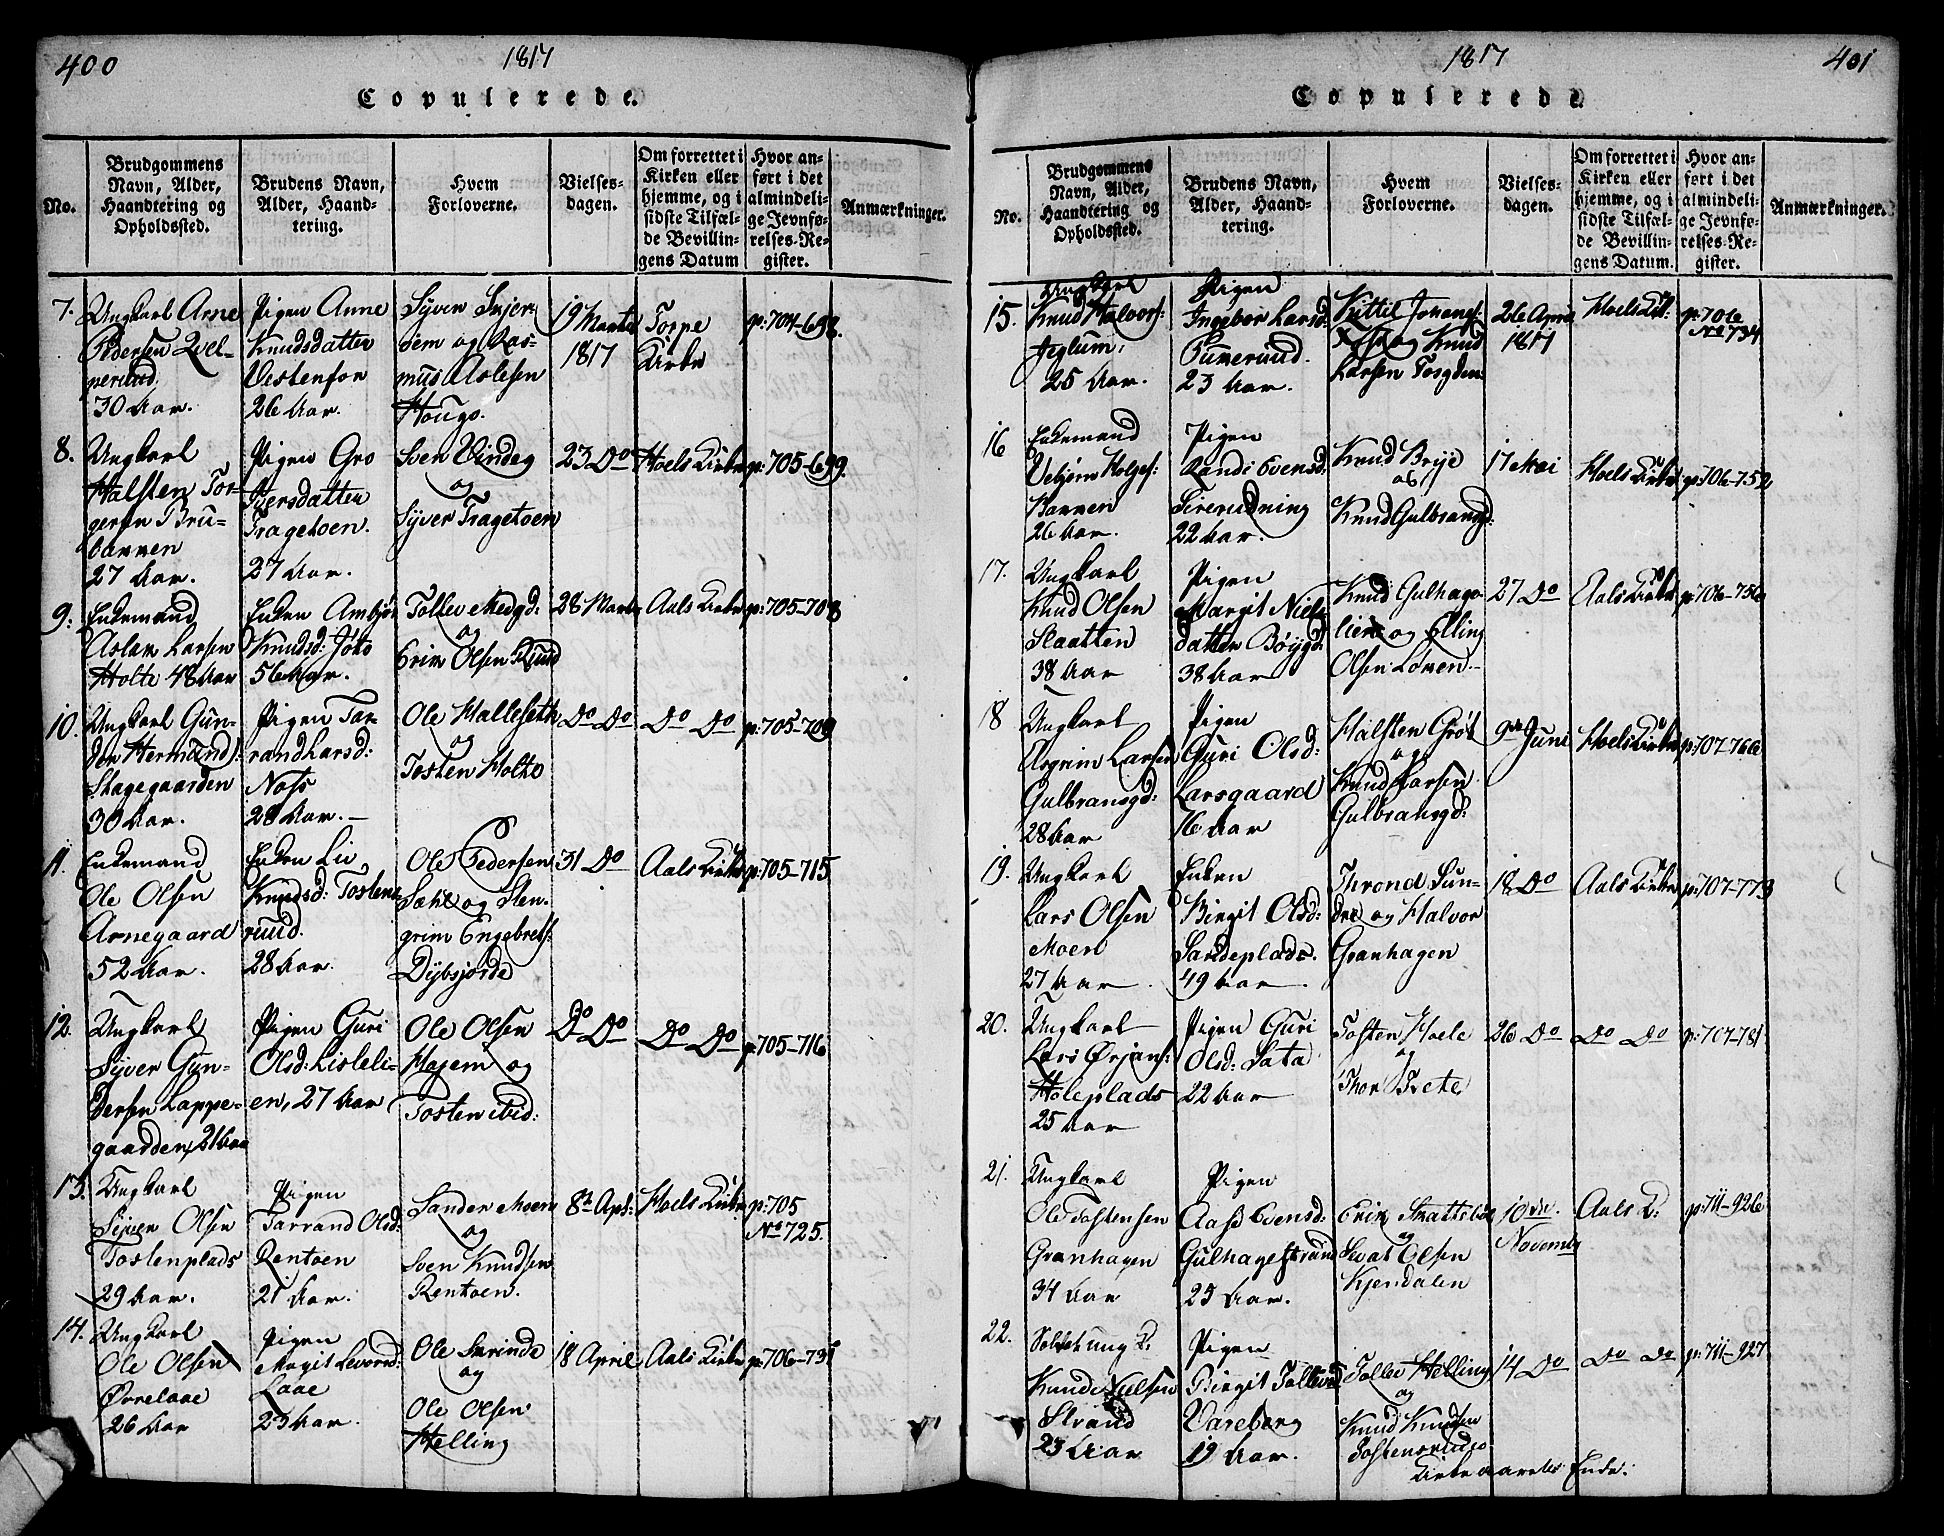 400
1817
Copulerede.
No.
Brudgommens Navn, Alder, Haandtering og Opholdssted.
Brudens Navn, Alder, Haandtering.
Hvem Forloverne.
Vielsesdagen.
Om forrettet i Kirken eller hjemme, og i sidste Tilfælde Bevillingens Datum
Hvor anført i det almindelige Jevnførelses-Register.
Anmærkninger.
7.
Ungkarl Arne
Pedersen
30 Aar.
Pigen Anne
Knudsdatter
Vestenfor
26 Aar.
Syver Skjer-
dem og Ras-
mus Aslesen
Houge.
19 Marts
1817
Torpe
Kirke
p: 704-698.
8.
Ungkarl
Halsten Tor-
gersen Bru-
bakken
27 Aar.
Pigen Gro
Iversdatter
Tragetoen.
27 Aar.
Sven Vindeg
og
Syver Tragetoen
23 Do
Hoels Kirke
p: 705-699.
9.
Enkemand
Aslak Larsen
Holte 48 Aar
Enken Ambjør
Knudsd:
56 Aar.
Tollev Medgd:
og
Erik Olsen Ruud
28 Marts
Aals Kirke
p: 705-708
10.
Ungkarl Gun-
der Hermands:
Skagegaarden
30 Aar.
Pigen Tar-
rand Larsd:
Noss
28 Aar.
Ole Halleseth
og
Tosten Holto
Do Do
Do Do
p: 705-709
11.
Enkemand
Ole Olsen
Arnegaard
52 Aar.
Enken Liv
Knudsd: Tostens
ruud.
28 Aar.
Ole Pedersen
Sæhl og Sten-
grim Engebrets:
Dybsjorde
31 Do
Aals Kirke
p: 705-715
12.
Ungkarl
Syver Gun-
dersen Lappe-
gaarden, 21 Aar
Pigen Guri
Olsd: Lisleli-
en, 27 Aar
Ole Olsen
Hagen og
Tosten ibid:
Do Do
Do Do
p: 705-716
13.
Ungkarl
Syver Olsen
Tostenplads
29 Aar.
Pigen
Tarrand Olsd:
Rentoen
21 Aar.
Sander Moen
og
Sven Knudsen
Rentoen.
8de Apl:
Hoels Kirke
p: 705
No 725.
14.
Ungkarl
Ole Olsen
Ørrelaae
26 Aar
Pigen
Margit Levord:
Laae
23 Aar.
Ole Skrinde
og
Ole Olsen
Helling
18 April
Aals Kirke
p: 706-731
1817
401
Copulerede.
No.
Brudgommens Navn, Alder, Haandtering og Opholdssted.
Brudens Navn, Alder, Haandtering.
Hvem Forloverne.
Vielsesdagen.
Om forrettet i Kirken eller hjemme, og i sidste Tilfælde Bevillingens Datum.
Hvor anført i det almindelige Jevnførelses-Register.
Anmærkninger.
15.
Ungkarl
Knud Halvors:
Jeglum.
25 Aar.
Pigen
Ingebor Larsd:
23 Aar.
Kittil
og Knud
Larsen
26 April
1817
Hoels K:
p: 706
No 734
16
Enkemand
Vebjørn Helges:
Bakken
26 Aar.
Pigen
Randi Evensd:
22 Aar.
Knud Brye
og
Knud Gulbransg:
17 Mai
Hoels Kirke
p: 706-752
17.
Ungkarl
Knud Olsen
Slaatten
38 Aar
Pigen
Margit Niels
datter Bøygd:
38 Aar.
Knud Gulhage-
lien og Elling
Olsen Løken.
27 Do
Aals Kirke
p: 706-756
18
Ungkarl
Asgrim Larsen
Gulbransgd:
28 Aar
Pigen
Guri Olsd:
Larsgaard
16 Aar
Halsten Grøt
og
Knud Larsen
Gulbransgd:
9de Juni
Hoels Kirke
p: 707-766
19.
Ungkarl
Lars Olsen
Moen
27 Aar
Enken
Birgit Olsd:
Sandeplads.
49 Aar.
Thrond Sun-
dre og Halvor
Granhagen
18 Do
Aals Kirke
p: 707-773
20.
Ungkarl
Lars Ørjans:
Holeplads
25 Aar
Pigen Guri
Olsd: Sata
22 Aar
Tosten Hoele
og
Thor Trete
26 Do
Do Do
p: 707-781
21.
Ungkarl
Ole Tostensen
Granhagen
34 Aar
Pigen
Aase Evensd:
Gulhagestrand
23 Aar.
Erik
og
Sevat Olsen
Kjendalen
10de
Novembr
Aals K:
p: 711-926
22.
Soldat ung k.
Knud Nielsen
Strand
23 Aar
Pigen
Birgit Tollevsd
Vareberg
19 Aar.
Tollev Helling
og
Knud Knudsen
Tostensruud
14 Do
Do Do
p: 711-927
Kirkeaarets Ende.